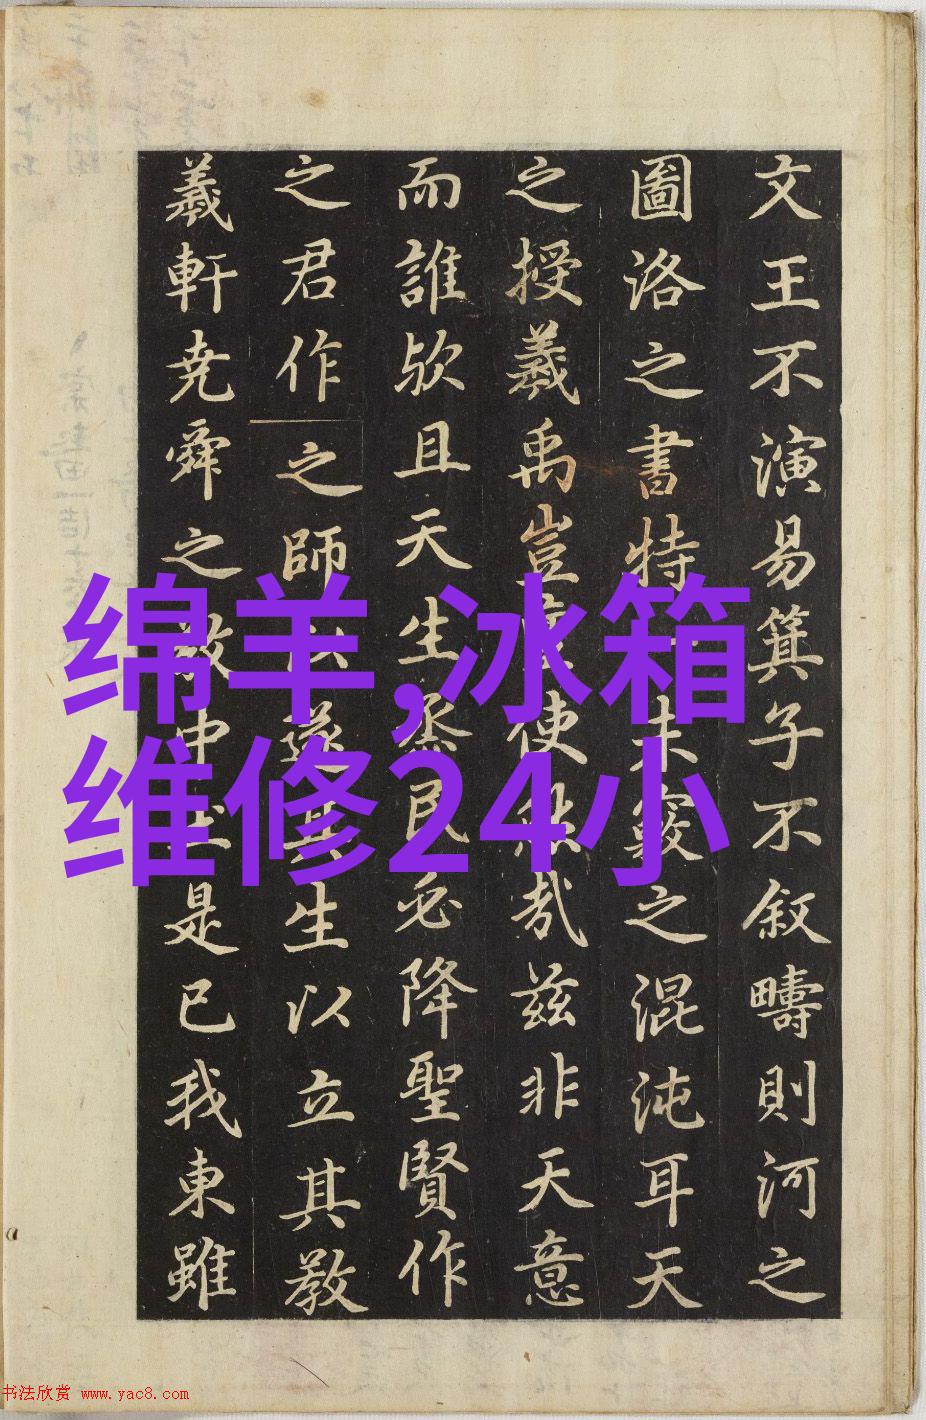 文王不演易箕子不叙疇則河之
圖洛之書特未竅之混沌耳天
之授羲禹豈使然哉兹非天意
而誰欤且天生烝民必降聖賢作
之君作之師以遂其生以立其教
羲軒尭舜之中是已我東雖
绵羊,冰箱
维修24小
书法欣赏 www.yac8.com